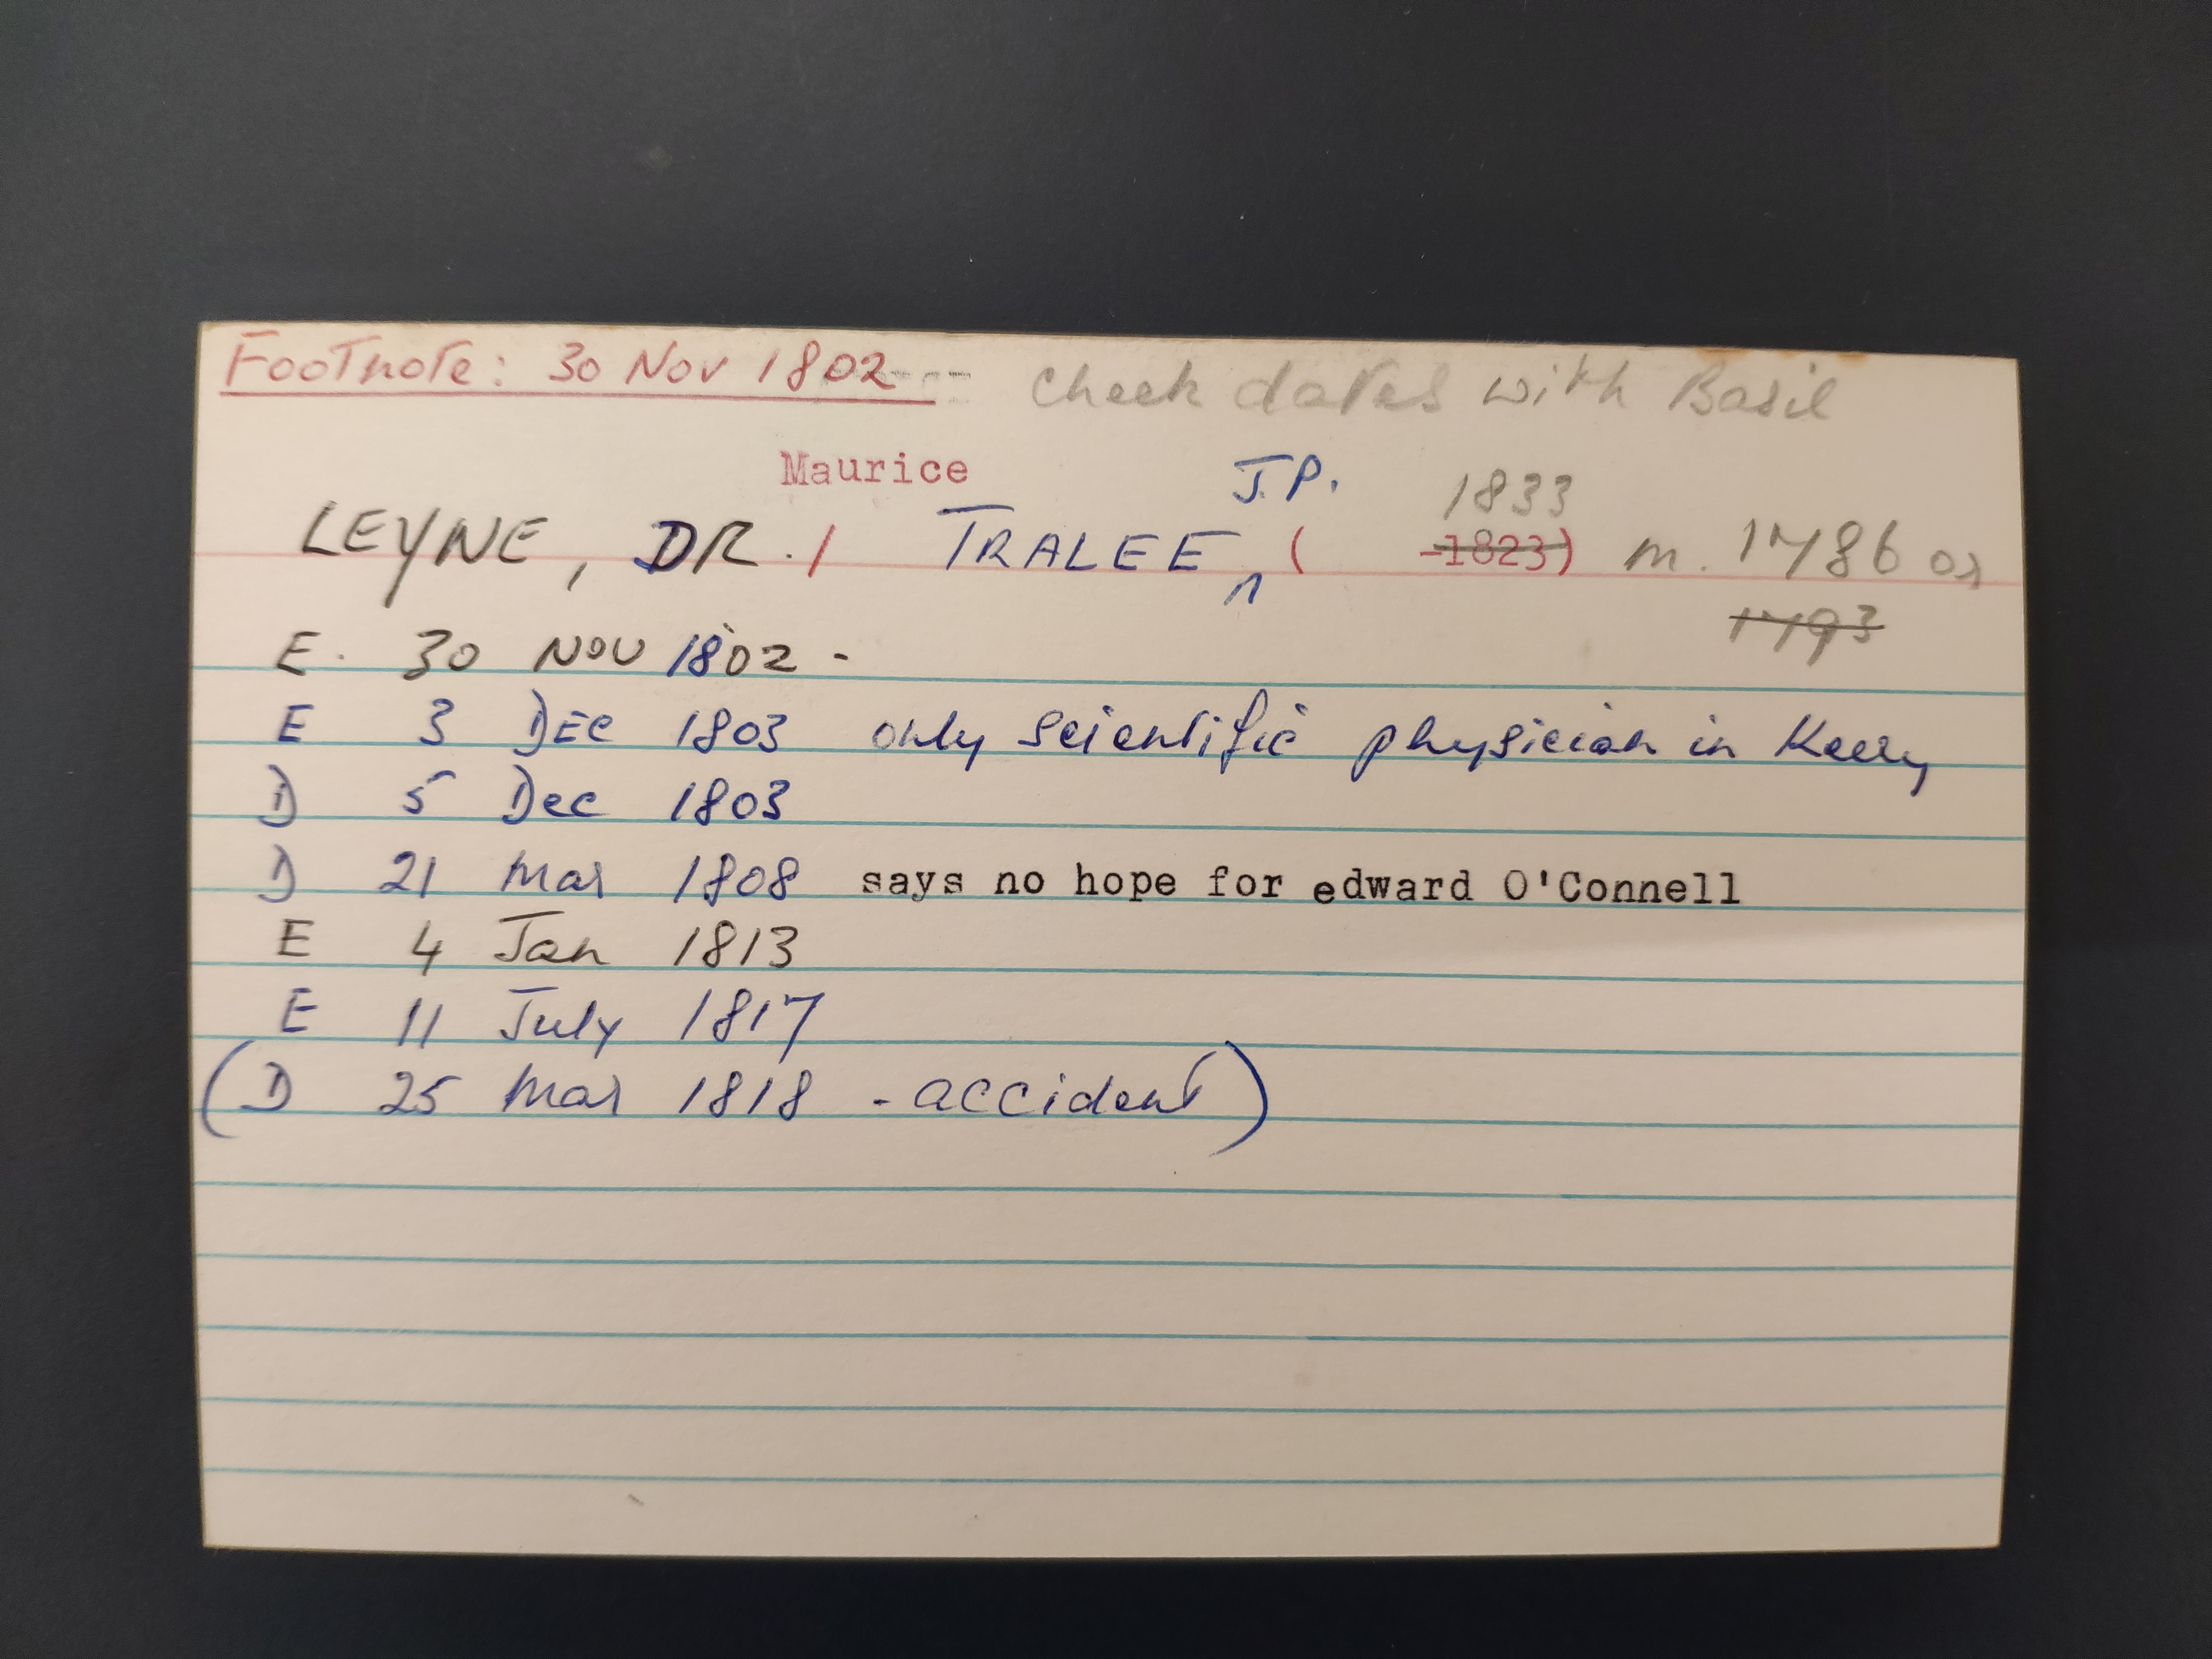 Footnote: 30 Nov 1802 Check dates with Basil
Maurice J.P. 1833
LEYNE, DR. / TRALEE ^ ( -1823) m. 1786 or
1793
E. 30 NOV 1802 -
E 3 DEC 1803 only scientific physician in Kerry
D 5 Dec 1803
D 21 Mar 1808 says no hope for edward O'Connell
E 4 Jan 1813
E 11 July 1817
(D 25 Mar 1818 - accident)